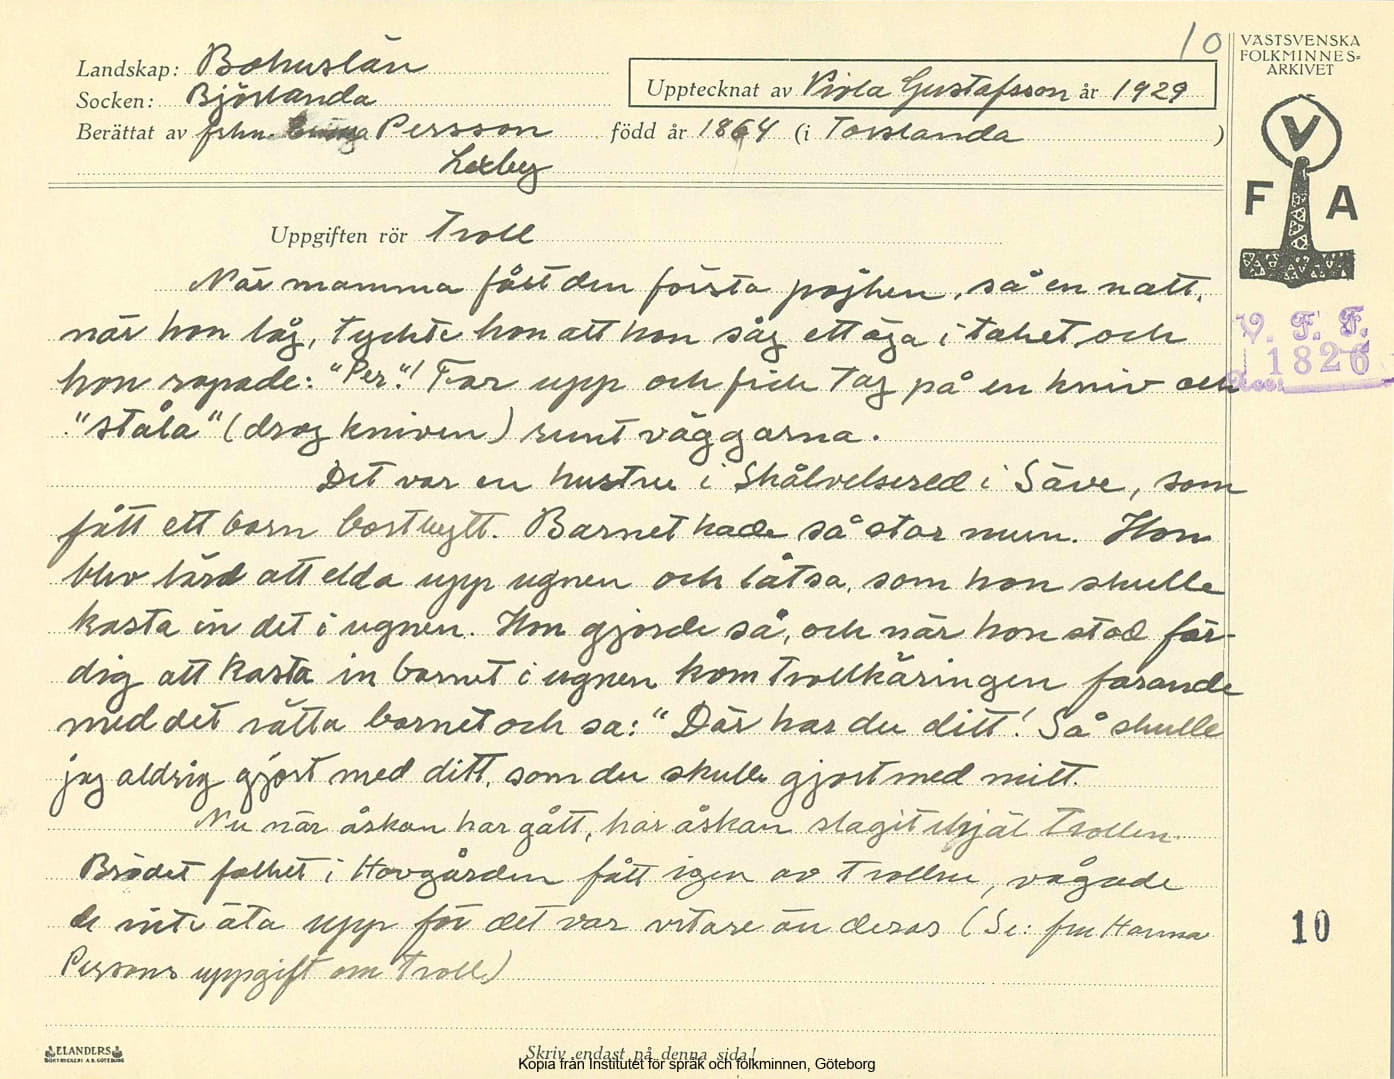 10
Landskap: Bohuslän
Socken: Björlanda
Upptecknat av Viola Gustafsson år 1929
Berättat av frkn. Persson född år 1864 (i Torslanda )
Lexby
Uppgiften rör Troll
När mamma fått den första pojken, så en natt,
när hon låg, tyckte hon att hon såg ett öga i taket, och
hon ropade: "Per"! Far upp och fick tag på en kniv och
"ståla" (drog kniven) runt väggarna.
Det var en hustru i Skålvelsered i Säve, som
fått ett barn bortbytt. Barnet hade så stor mun. Hon
blev lärd att elda upp ugnen och låtsa, som hon skulle
kasta in det i ugnen. Hon gjorde så, och när hon stod fär-
dig att kasta in barnet i ugnen kom trollkäringen farande
med det rätta barnet och sa: "Där har du ditt! Så skulle
jag aldrig gjort med ditt, som du skulle gjort med mitt.
Nu när åskan har gått, har åskan slagit ihjäl trollen.
Brödet folket i Hovgården fått igen av trollen, vågade
de inte äta upp för det var vitare än deras (Se: fru Hanna
Perssons uppgift om Troll)
Skriv endast på denna sida!
ELANDERS
BOKTRYCKERI A.B. GÖTEBORG
VÄSTSVENSKA
FOLKMINNES-
ARKIVET
V
F A
V. F. F.
1826
Acc.
10
Kopia från Institutet för språk och folkminnen, Göteborg